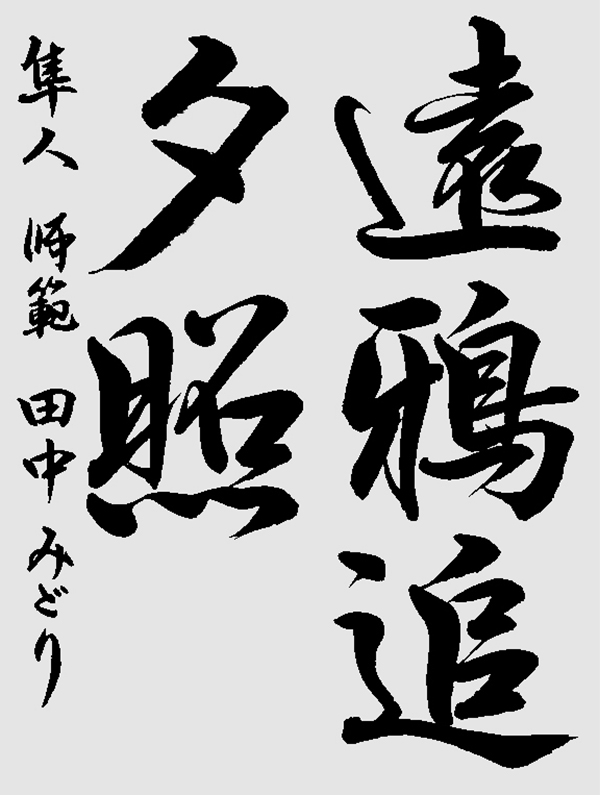 遠鴉追
夕照
隼人 師範 田中みどり